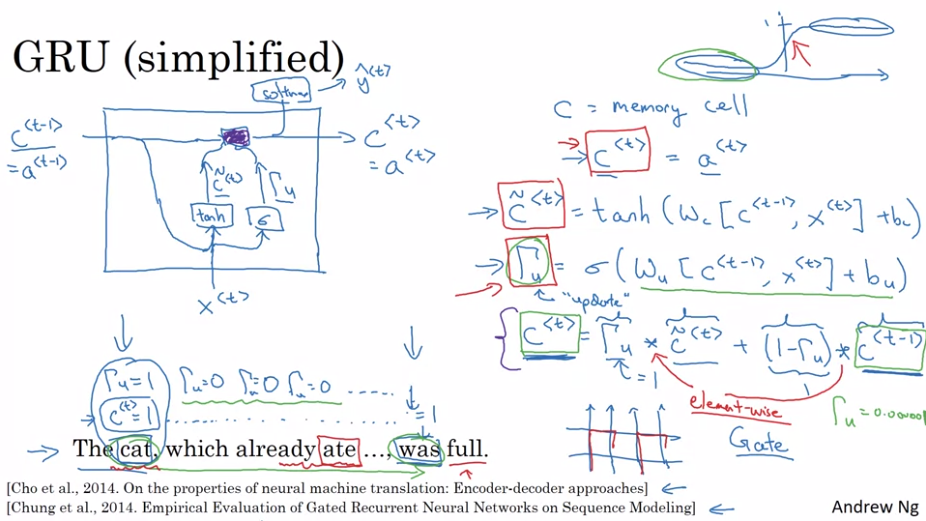 GRU (simplified)
softmax → ŷ<t>
c<t-1>
= a<t-1>
c̃<t>
Γu
tanh
σ
x<t>
c<t>
= a<t>
1
C = memory cell
→ c<t> = a<t>
→ c̃<t> = tanh (Wc [c<t-1>, x<t>] + bc)
→ Γu = σ (Wu [c<t-1>, x<t>] + bu)
"update"
c<t> = Γu * c̃<t> + (1-Γu) * c<t-1>
= 1
1
element-wise
Γu = 0.00000
Gate
Γu=1 Γu=0 Γu=0 Γu=0 ......
c<t>=1 ............ = 1
→ The cat, which already ate ..., was full.
[Cho et al., 2014. On the properties of neural machine translation: Encoder-decoder approaches] ←
[Chung et al., 2014. Empirical Evaluation of Gated Recurrent Neural Networks on Sequence Modeling] ←
Andrew Ng